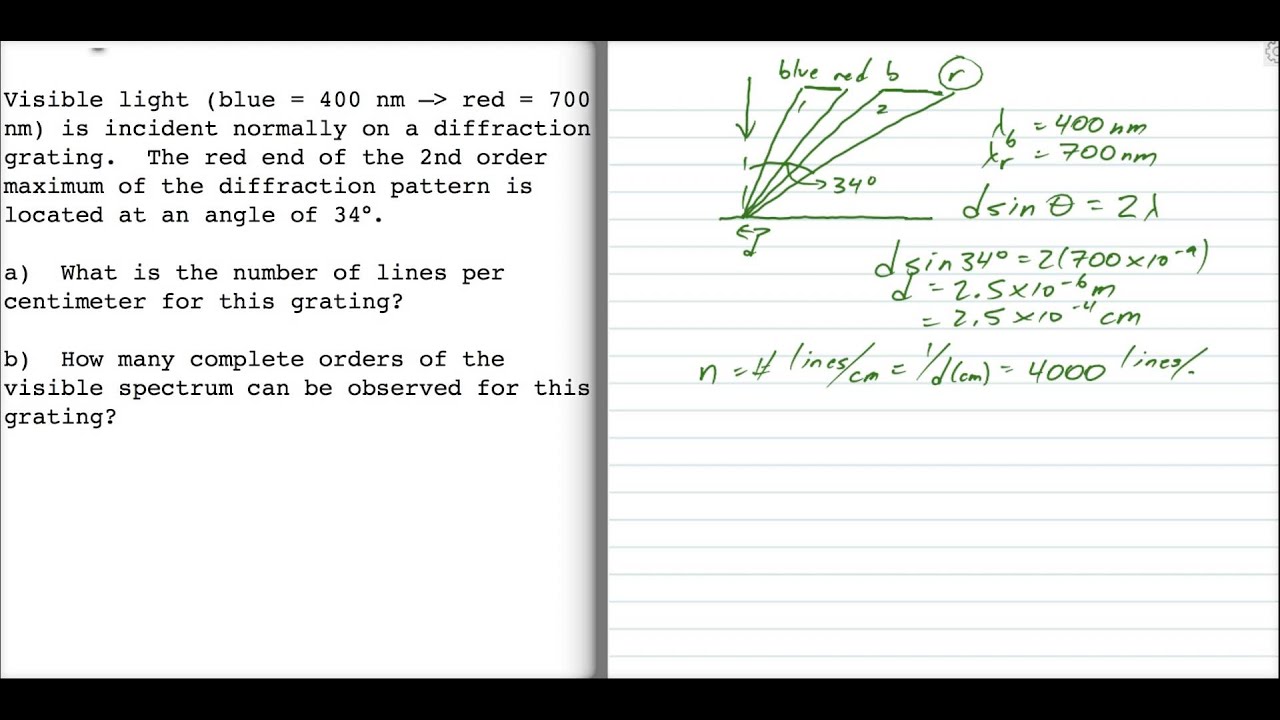 Visible light (blue = 400 nm —> red = 700
nm) is incident normally on a diffraction
grating. The red end of the 2nd order
maximum of the diffraction pattern is
located at an angle of 34º.
a) What is the number of lines per
centimeter for this grating?
b) How many complete orders of the
visible spectrum can be observed for this
grating?
blue red b r
1 2
34°
d
λb = 400 nm
λr = 700 nm
d sin θ = 2λ
d sin 34° = 2(700 × 10⁻⁹)
d = 2.5 × 10⁻⁶ m
= 2.5 × 10⁻⁴ cm
n = # lines/cm = 1/d(cm) = 4000 lines/.